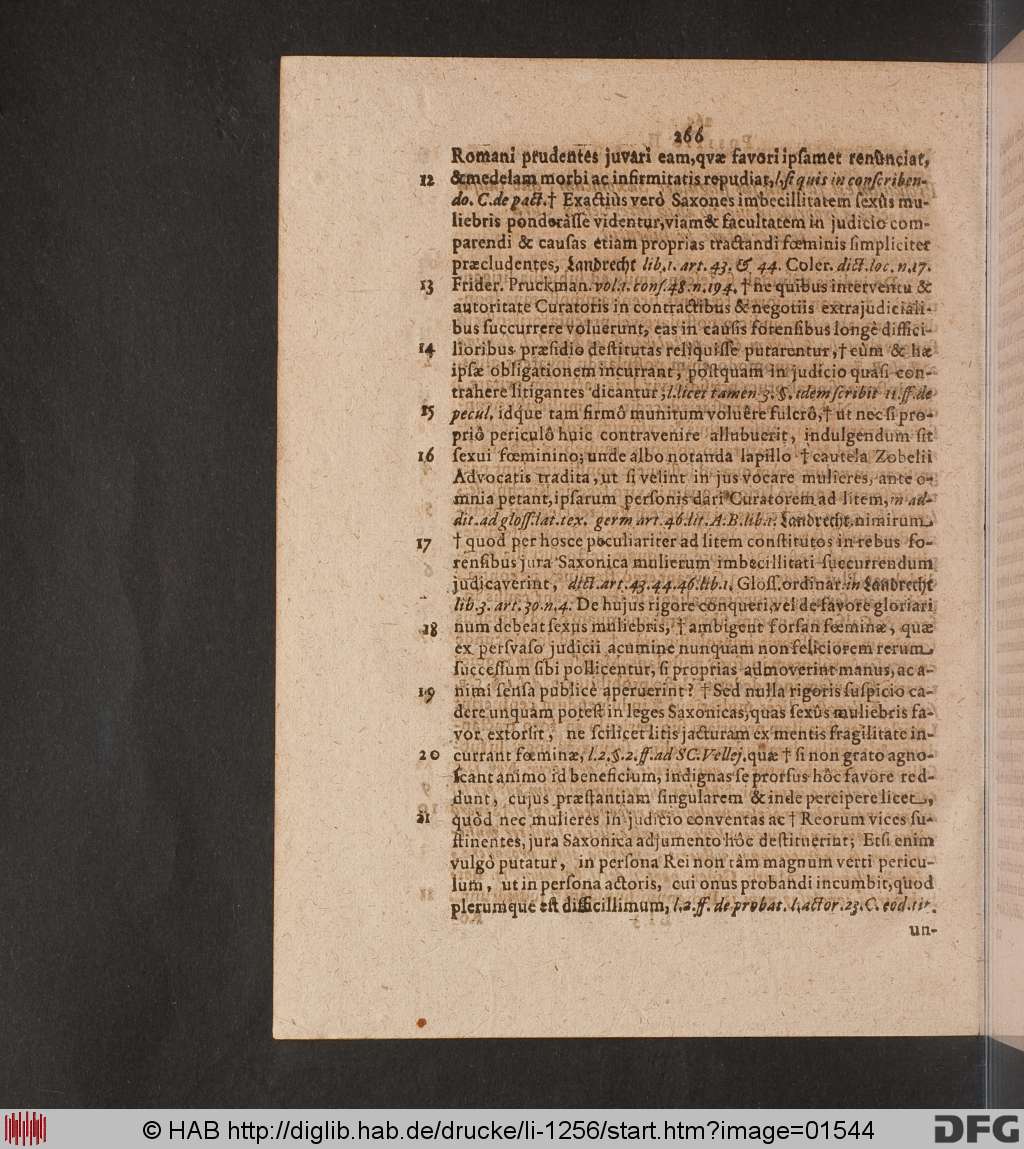 266
Romani prudentes juvari eam, qvæ favori ipsamet renunciat,
12 & medelam morbi ac infirmitatis repudiat, l. si quis in conscriben-
do. C. de pact. † Exactiùs verò Saxones imbecillitatem sexûs mu-
liebris ponderâsse videntur, viam & facultatem in judicio com-
parendi & causas etiam proprias tractandi fœminis simpliciter
præcludentes, Landrecht lib. 1. art. 43. & 44. Coler. dict. loc. n. 17.
13 Frider. Pruckman. vol. 1. cons. 48. n. 194. † ne quibus interventu &
autoritate Curatoris in contractibus & negotiis extrajudiciali-
bus succurrere voluerunt, eas in causis forensibus longè diffici-
14 lioribus præsidio destitutas reliquisse putarentur, † cùm & hæ
ipsæ obligationem incurrant, postquam in judicio quasi con-
trahere litigantes dicantur; l. licet tamen 3. §. idem scribit 11. ff. de
15 pecul. idque tam firmô munitum voluêre fulcrô, † ut nec si pro-
priô periculô huic contravenire allubuerit, indulgendum sit
16 sexui fœminino; unde albo notanda lapillo † cautela Zobelii
Advocatis tradita, ut si velint in jus vocare mulieres, ante o-
mnia petant, ipsarum personis dari Curatorem ad litem, in ad-
dit. ad gloss. lat. tex. germ art. 46. lit. A. B. lib. 1. Landrecht. nimirum
17 † quod per hosce peculiariter ad litem constitutos in rebus fo-
rensibus jura Saxonica mulierum imbecillitati succurrendum
judicaverint, dict. art. 43. 44. 46. lib. 1. Gloss. ordinar. in Landrecht
lib. 3. art. 30. n. 4. De hujus rigore conqueri, vel de favore gloriari
18 num debeat sexus muliebris, † ambigent forsan fœminæ, quæ
ex persvaso judicii acumine nunquam non feliciorem rerum
successum sibi pollicentur, si proprias admoverint manus, ac a-
19 nimi sensa publicè aperuerint? † Sed nulla rigoris suspicio ca-
dere unquam potest in leges Saxonicas, quas sexûs muliebris fa-
vor extorsit, ne scilicet litis jacturam ex mentis fragilitate in-
20 currant fœminæ, l. 2. §. 2. ff. ad SC. Vellej. quæ † si non grato agno-
scant animo id beneficium, indignas se prorsus hôc favore red-
dunt, cujus præstantiam singularem & inde percipere licet,
21 quòd nec mulieres in judicio conventas ac † Reorum vices su-
stinentes, jura Saxonica adjumento hôc destituerint; Etsi enim
vulgò putatur, in persona Rei non tàm magnum verti pericu-
lum, ut in persona actoris, cui onus probandi incumbit, quod
plerumque est difficillimum, l. 2. ff. de probat. l. actor. 23. C. eod. tit.
un-
© HAB http://diglib.hab.de/drucke/li-1256/start.htm?image=01544
DFG